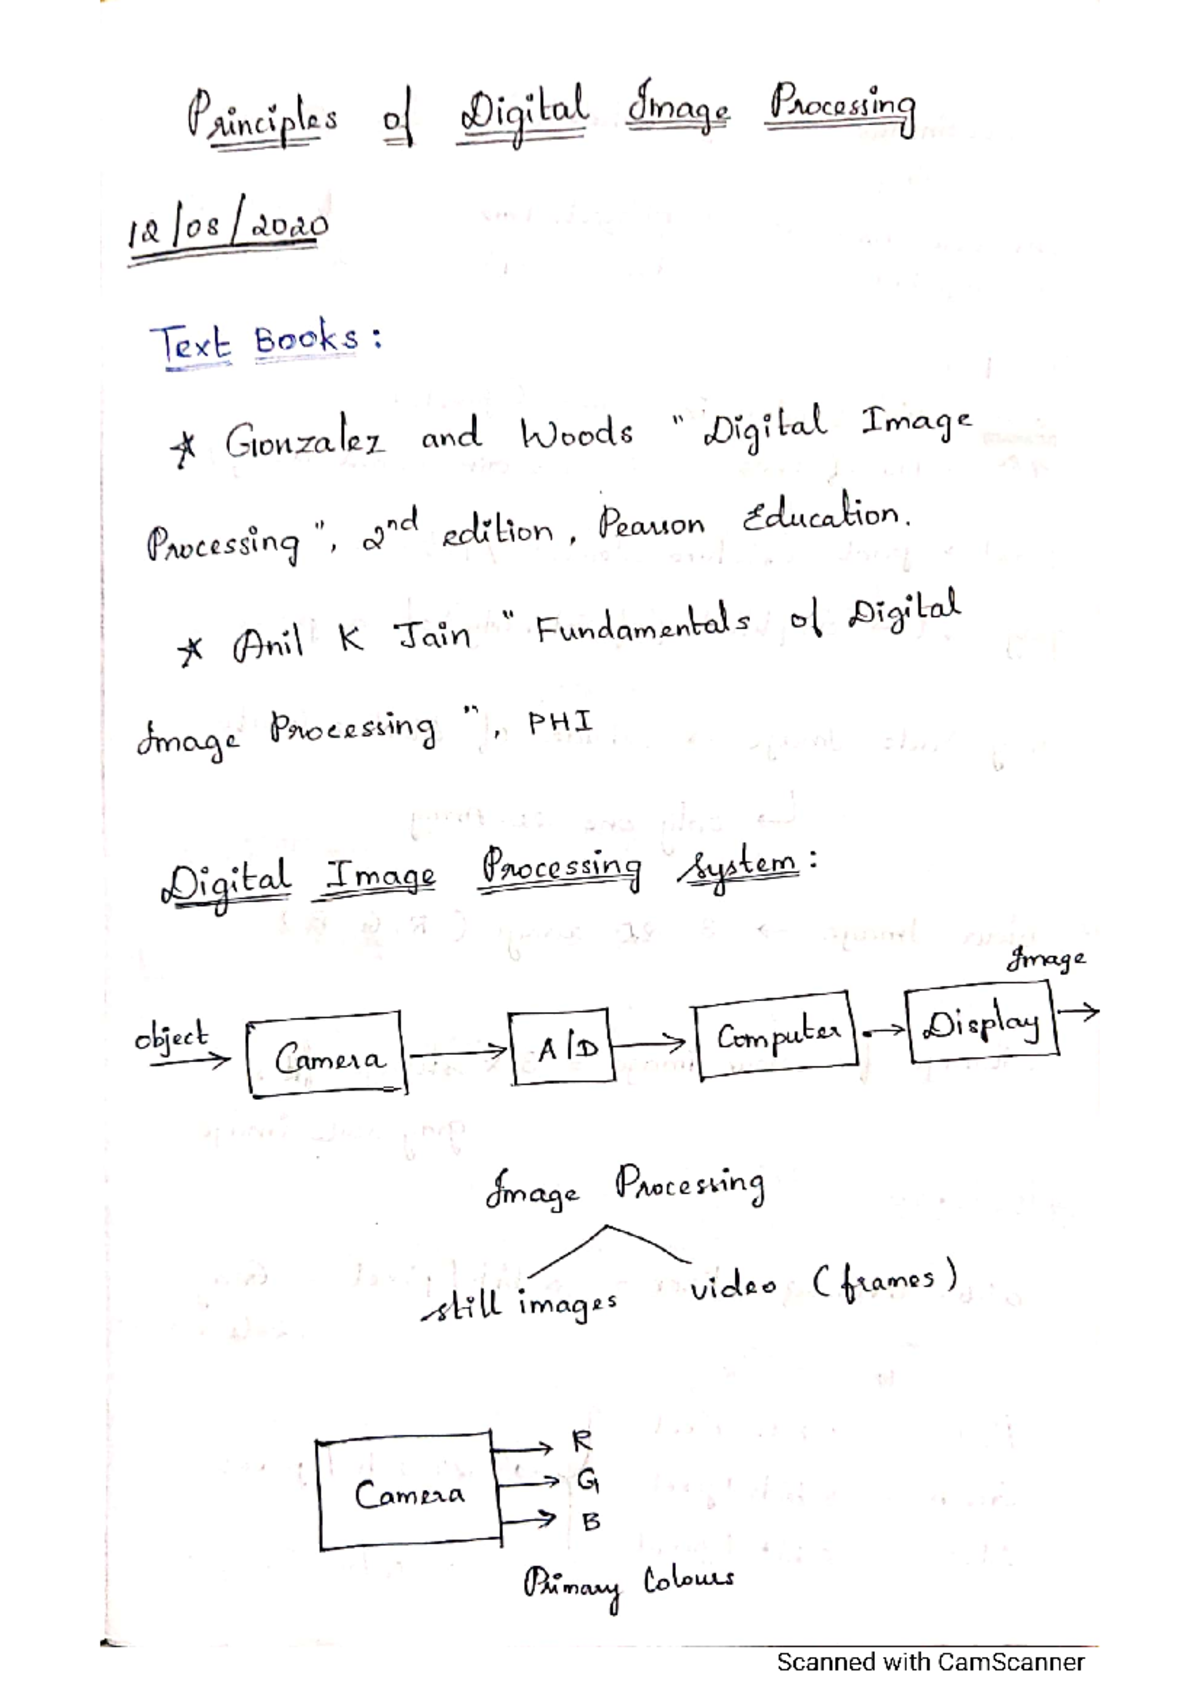 Principles of Digital Image Processing
12/08/2020
Text Books:
* Gonzalez and Woods "Digital Image
Processing", 2nd edition, Pearson Education.
* Anil K Jain "Fundamentals of Digital
Image Processing", PHI
Digital Image Processing System:
Image
object Camera A/D Computer Display
Image Processing
still images video (frames)
R
Camera G
B
Primary Colours
Scanned with CamScanner